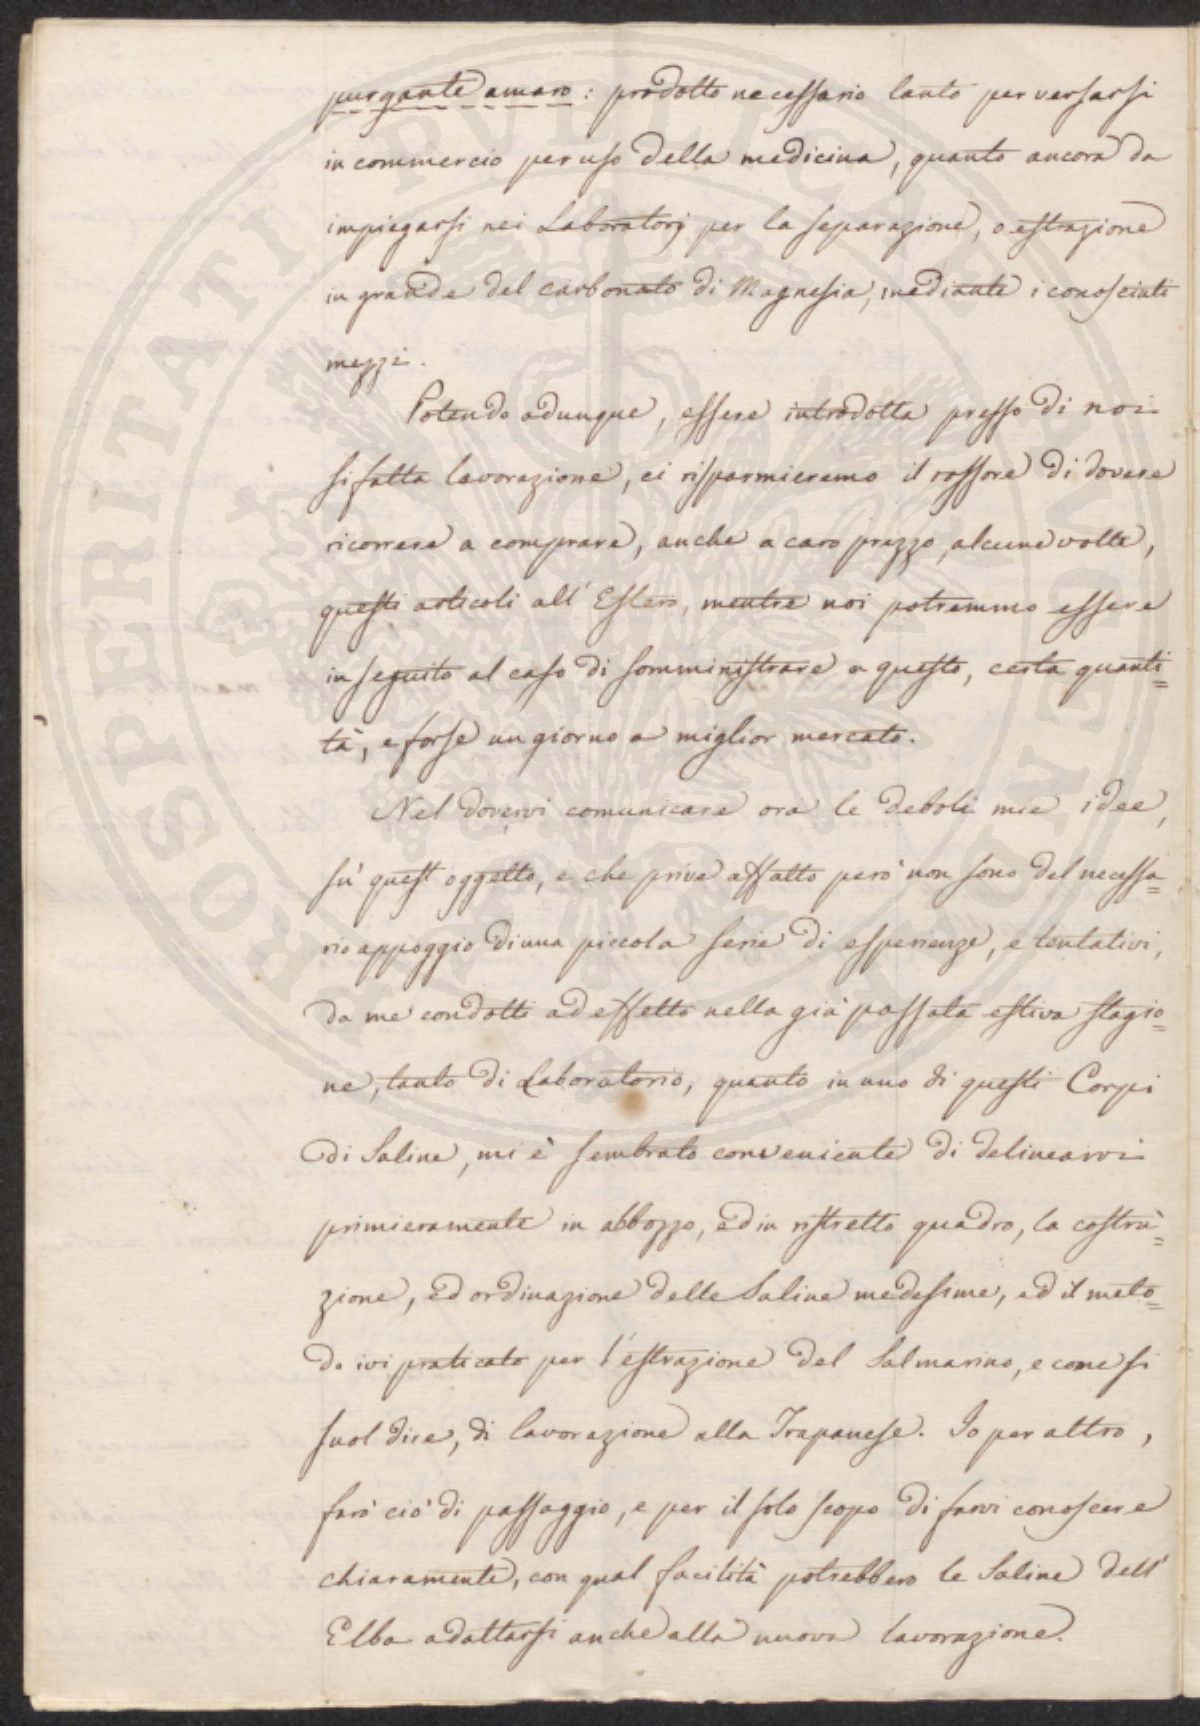 purgante amaro: prodotto necessario tanto per versarsi
in commercio per uso della medicina, quanto ancora da
impiegarsi nei Laboratorj per la separazione, o estrazione
in grande del carbonato di Magnesia, mediante i conosciuti
mezzi.
Potendo adunque, essere introdotta presso di noi
sifatta lavorazione, ci risparmieremo il rossore di dovere
ricorrere a comprare, anche a caro prezzo, alcune volte,
questi articoli all' Estero, mentre noi potremmo essere
in seguito al caso di somministrare a questo, certa quanti=
tà, e forse un giorno a miglior mercato.
Nel dovervi comunicare ora le deboli mie idee,
su' quest oggetto, e che prive affatto però non sono del necessa=
rio appoggio di una piccola serie di esperienze, e tentativi,
da me condotti ad effetto nella già passata estiva stagio=
ne, tanto di Laboratorio, quanto in uno di questi Corpi
di Saline, mi è sembrato conveniente di delinearvi
primieramente in abbozzo, ed in ristretto quadro, la costru=
zione, ed ordinazione delle Saline medesime, ed il meto=
do ivi praticato per l'estrazione del Salmarino, e come si
suol dire, di lavorazione alla Trapanese. Io per altro,
farò ciò di passaggio, e per il solo scopo di farvi conoscere
chiaramente, con qual facilità potrebbero le Saline dell'
Elba adattarsi anche alla nuova lavorazione.
PROSPERITATI PVBLICAE AVGENDAE